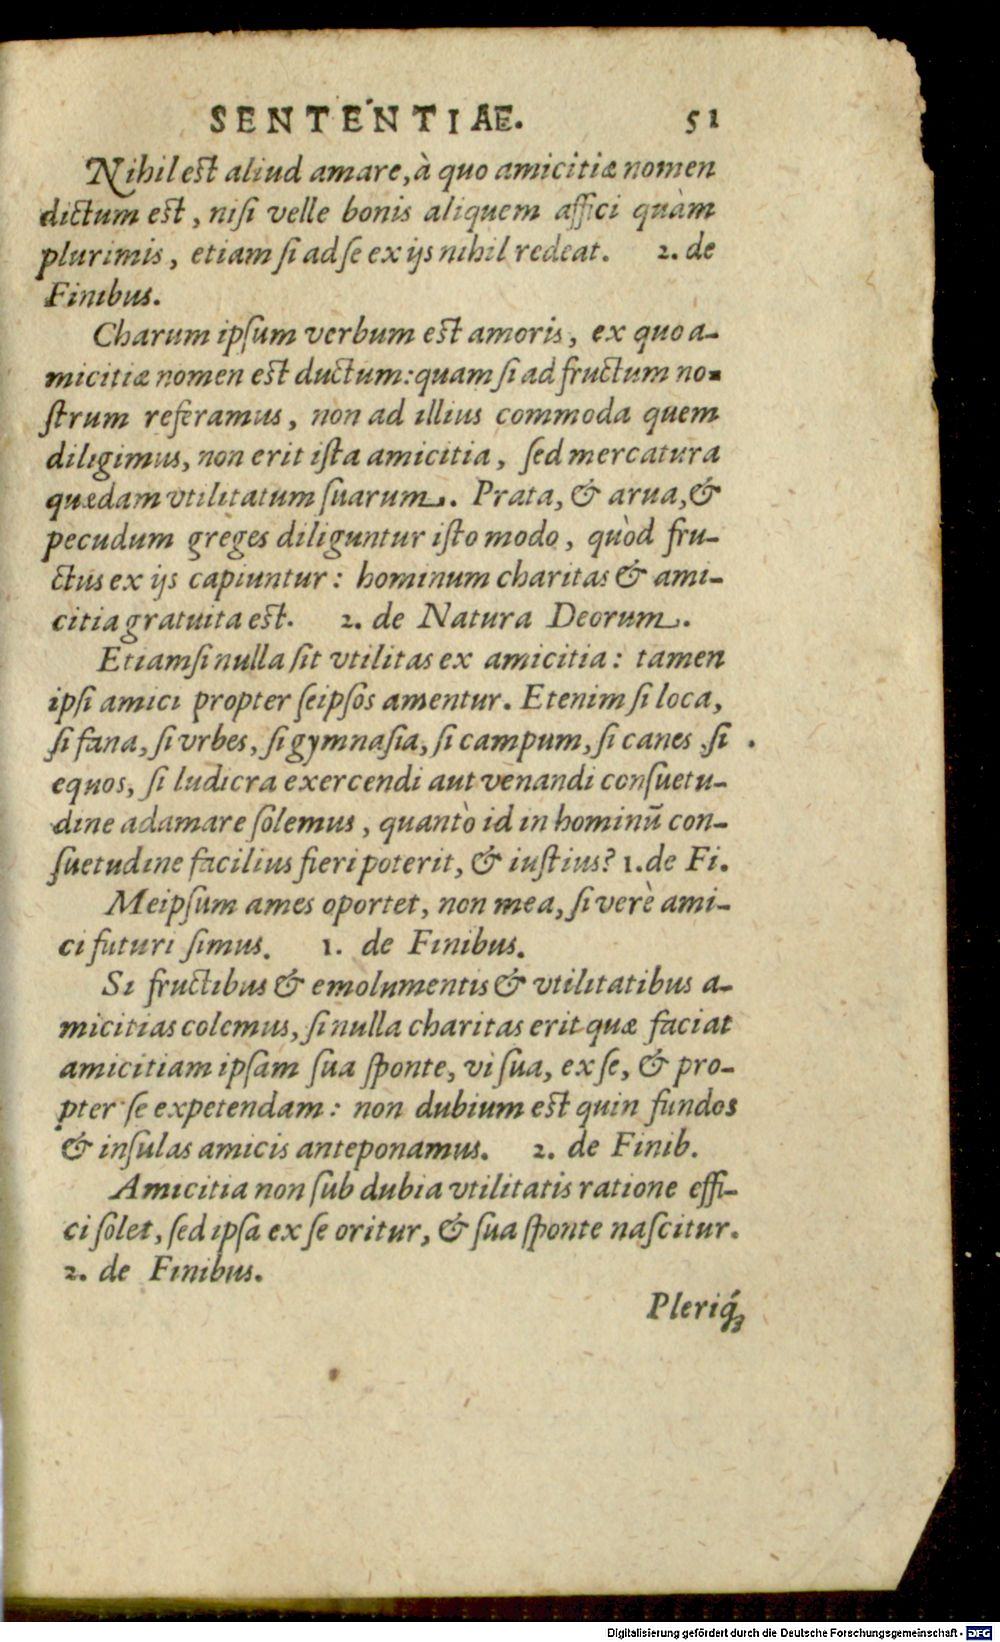 SENTENTIAE. 51
Nihil est aliud amare, à quo amicitiæ nomen
dictum est, nisi velle bonis aliquem affici quàm
plurimis, etiam si ad se ex ijs nihil redeat. 2. de
Finibus.
Charum ipsum verbum est amoris, ex quo a-
micitiæ nomen est ductum: quam si ad fructum no-
strum referamus, non ad illius commoda quem
diligimus, non erit ista amicitia, sed mercatura
quædam vtilitatum suarum. Prata, & arua, &
pecudum greges diliguntur isto modo, quòd fru-
ctus ex ijs capiuntur: hominum charitas & ami-
citia gratuita est. 2. de Natura Deorum.
Etiamsi nulla sit vtilitas ex amicitia: tamen
ipsi amici propter seipsos amentur. Etenim si loca,
si fana, si vrbes, si gymnasia, si campum, si canes, si
equos, si ludicra exercendi aut venandi consuetu-
dine adamare solemus, quantò id in hominū con-
suetudine facilius fieri poterit, & iustius? 1. de Fi.
Meipsum ames oportet, non mea, si verè ami-
ci futuri simus. 1. de Finibus.
Si fructibus & emolumentis & vtilitatibus a-
micitias colemus, si nulla charitas erit quæ faciat
amicitiam ipsam sua sponte, vi sua, ex se, & pro-
pter se expetendam: non dubium est quin fundos
& insulas amicis anteponamus. 2. de Finib.
Amicitia non sub dubia vtilitatis ratione effi-
ci solet, sed ipsa ex se oritur, & sua sponte nascitur.
2. de Finibus.
Pleriq́;
Digitalisierung gefördert durch die Deutsche Forschungsgemeinschaft - DFG